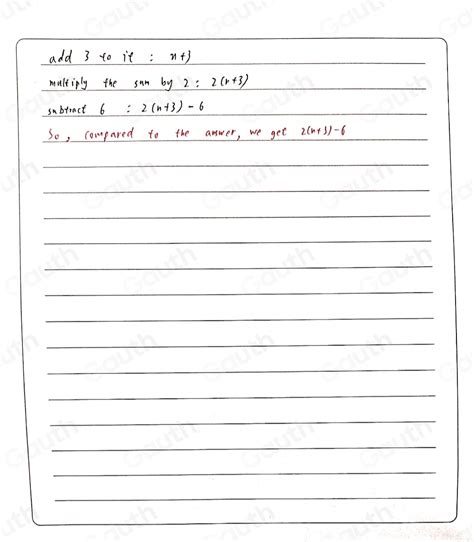 add 3 to it : n+3
multiply the sum by 2 : 2(n+3)
subtract 6 : 2(n+3) - 6
So, compared to the answer, we get 2(n+3)-6
Gauth